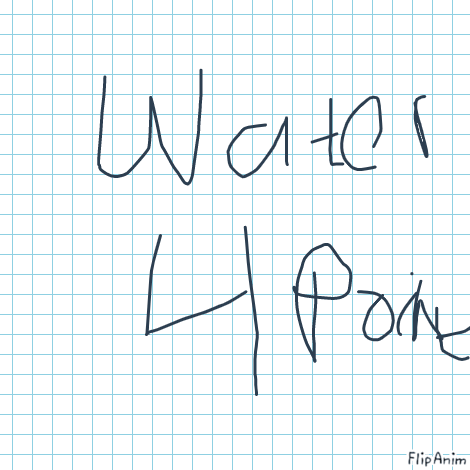 Water
4 Point
FlipAnim